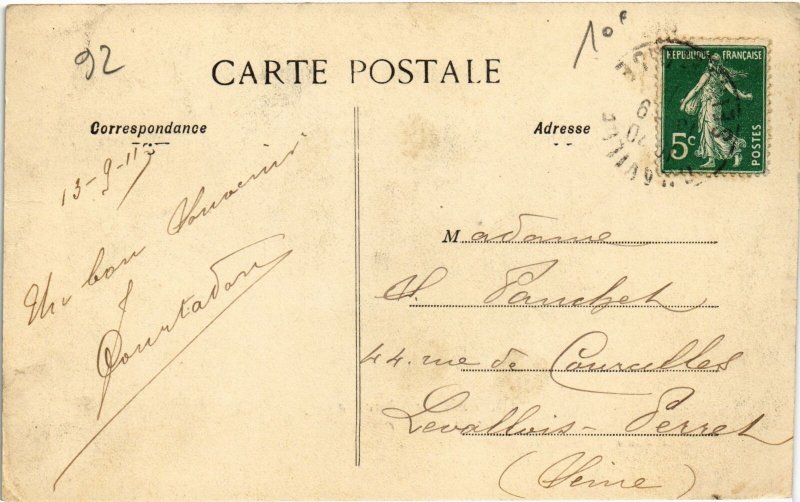 92
10F
CARTE POSTALE
RÉPUBLIQUE FRANÇAISE
5c
POSTES
Correspondance
Adresse
13-9-11
Un bon Souvenir
Madame
44. rue de Courcelles
Levallois-Perret
(Seine)